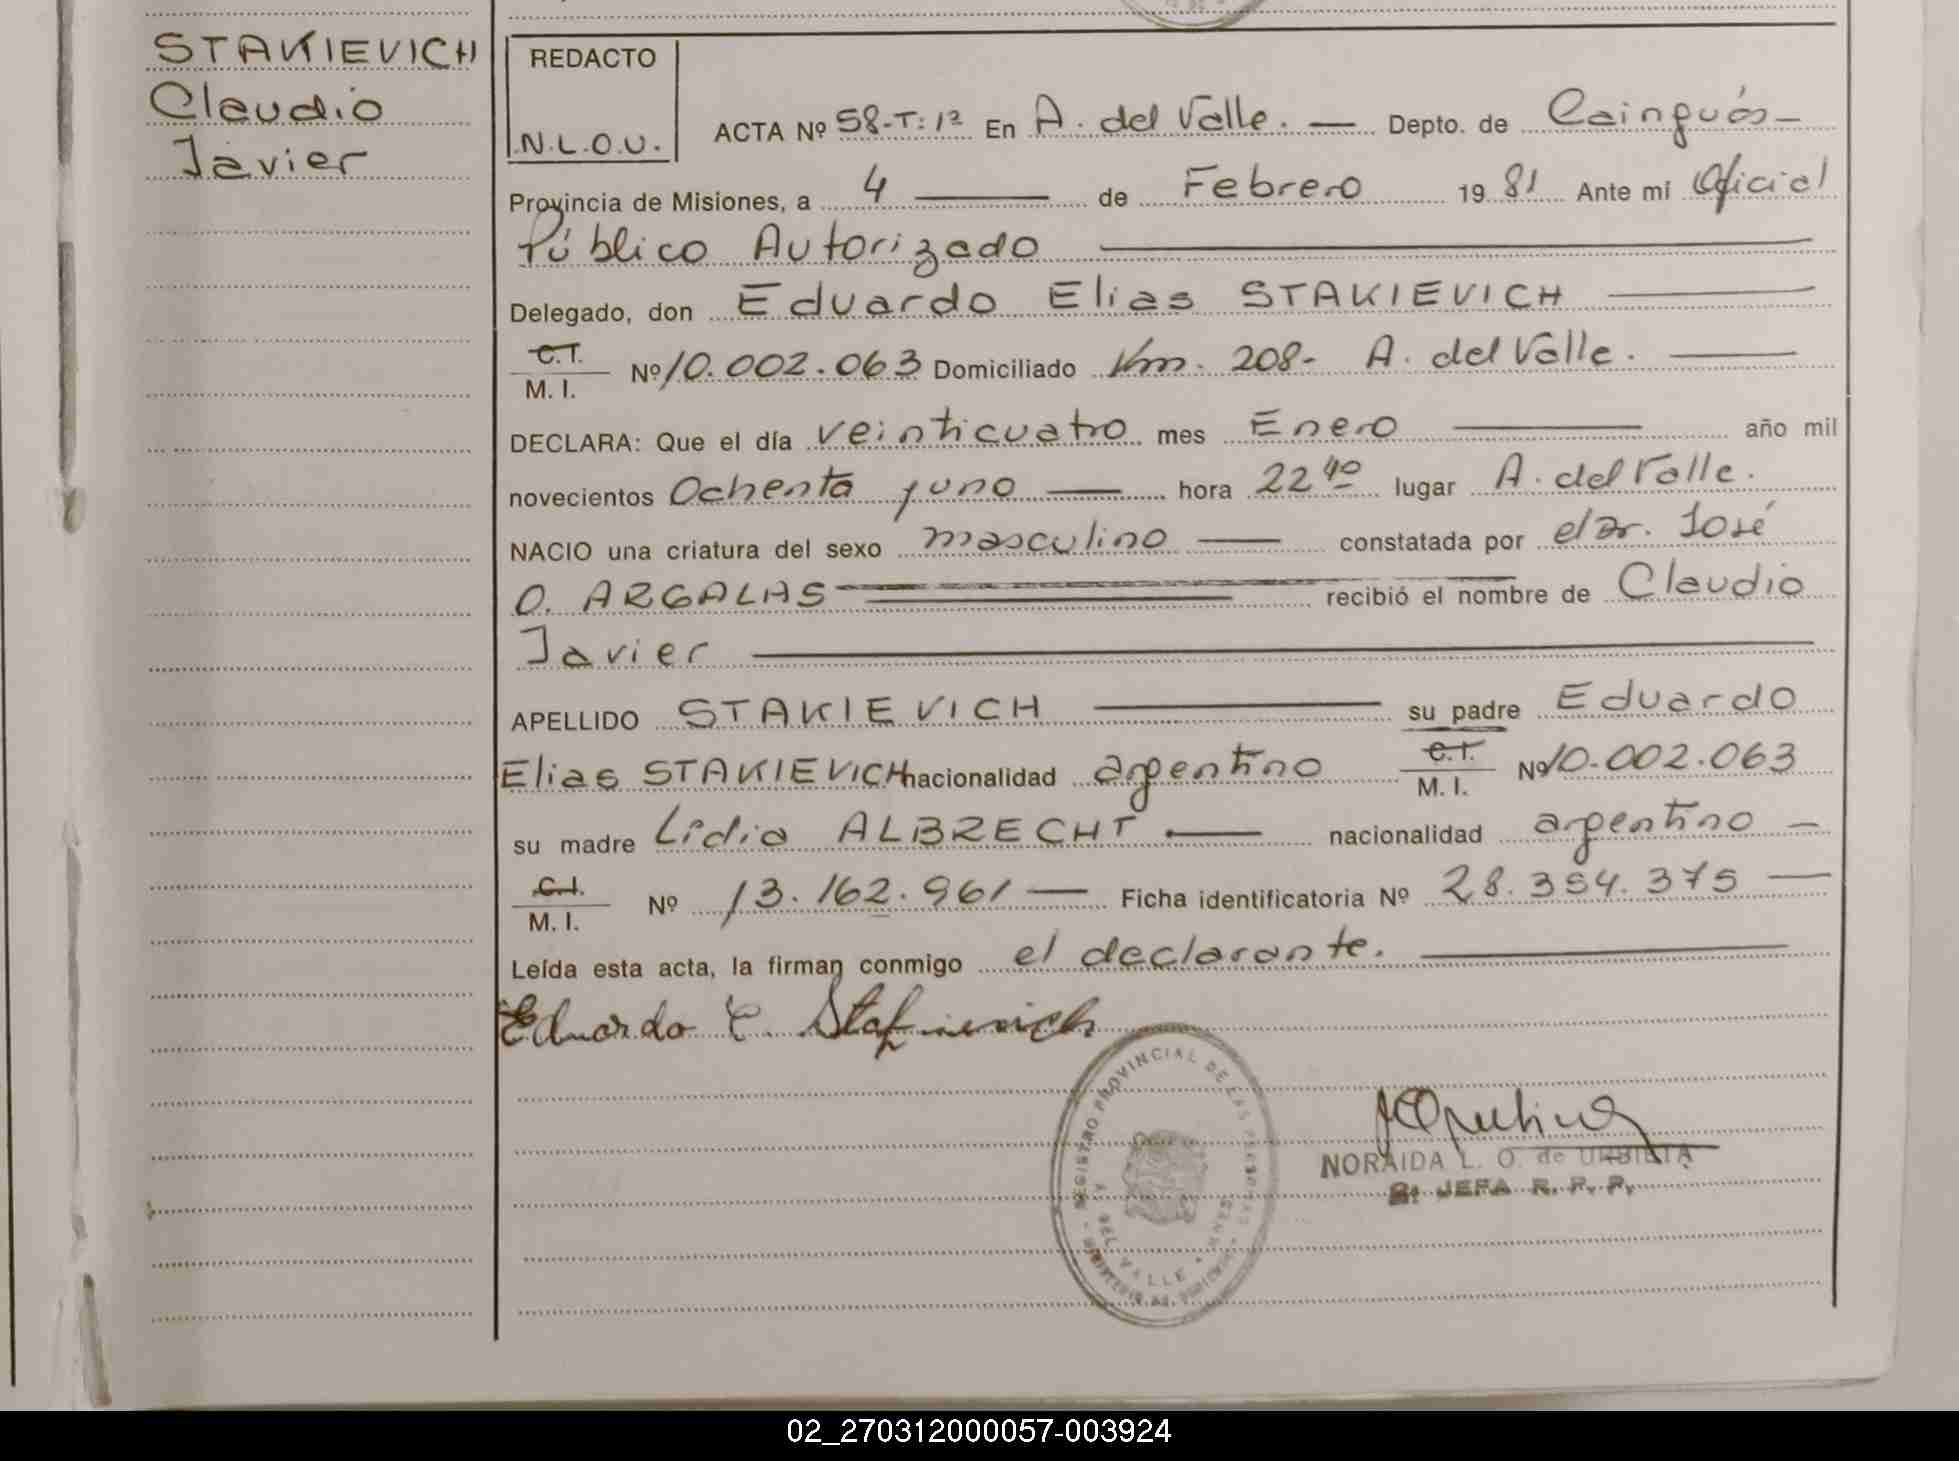 STAKIEVICH
Claudio
Javier
REDACTO
N.L.O.U.
ACTA Nº 58-T:1º En A. del Valle. — Depto. de Cainguás -
Provincia de Misiones, a 4 — de Febrero 19 81 Ante mi Oficial
Público Autorizado —
Delegado, don Eduardo Elias STAKIEVICH —
C.I.
M. I. Nº 10.002.063 Domiciliado Km. 208- A. del Valle. —
DECLARA: Que el día veinticuatro mes Enero — año mil
novecientos Ochenta y uno — hora 22 40 lugar A. del Valle.
NACIO una criatura del sexo masculino — constatada por el Dr. José
O. ARGALAS — recibió el nombre de Claudio
Javier —
APELLIDO STAKIEVICH — su padre Eduardo
Elias STAKIEVICH nacionalidad argentino C.I. M. I. Nº 10.002.063
su madre Lidia ALBRECHT — nacionalidad argentino —
C.I.
M. I. Nº 13.162.961 — Ficha identificatoria Nº 28.354.375 —
Leída esta acta, la firman conmigo el declarante. —
Eduardo E. Stakievich
REGISTRO PROVINCIAL DE LAS PERSONAS
DEL VALLE
NORAIDA L. O. de URBIETA
JEFA R. P. P.
02_270312000057-003924